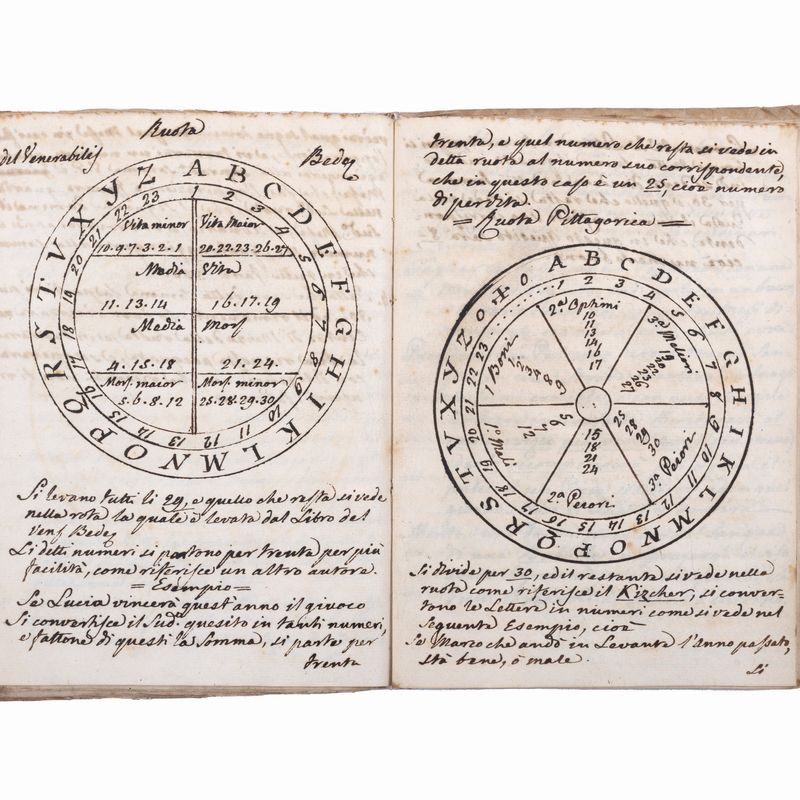 Ruota
del Venerabilis Bedeȝ
A B C D E F G H I K L M N O P Q R S T V X Y Z
1 2 3 4 5 6 7 8 9 10 11 12 13 14 15 16 17 18 19 20 21 22 23
Vita minor Vita Maior
10.9.7.3.2.1 20.22.23.26.27
Media Vita
11.13.14 16.17.19
Media Mors
4.15.18 21.24.
Mors. maior Mors. minor
5.6.8.12 25.28.29.30
Si levano tutti li 29, e quello che resta si vede
nella rota la quale è levata dal Libro del
Venˢ Bedeȝ
Li detti numeri si partono per trenta per più
facilità, come riferisce un altro autore.
= Esempio =
Se Lucia vincerà quest'anno il giuoco
Si convertisce il Sudº quesito in tanti numeri,
e fattone di questi la Somma, si parte per
trenta
trenta, e quel numero che resta si veda in
detta ruota al numero suo corrispondente,
che in questo caso è un 25, cioè numero
di perdita.
= Ruota Pittagorica =
A B C D E F G H I K L M N O P Q R S T V X Y Z
1 2 3 4 5 6 7 8 9 10 11 12 13 14 15 16 17 18 19 20 21 22 23
2.ª Ophimi
10
11
13
14
16
17
3.ª Meliori
19
25
28
29
30
3.ª Peiori
15
18
21
24
2.ª Peiori
5
6
7
12
1.º Mali
1 Boni
1 2 3 4 8 9
Si divide per 30, ed il restante si vede nella
ruota come riferisce il Kircher, si conver-
tono le Lettere in numeri come si vede nel
seguente Esempio, cioè
Se Marco che andò in Levante l'Anno passato,
stà bene, ò male.
Li